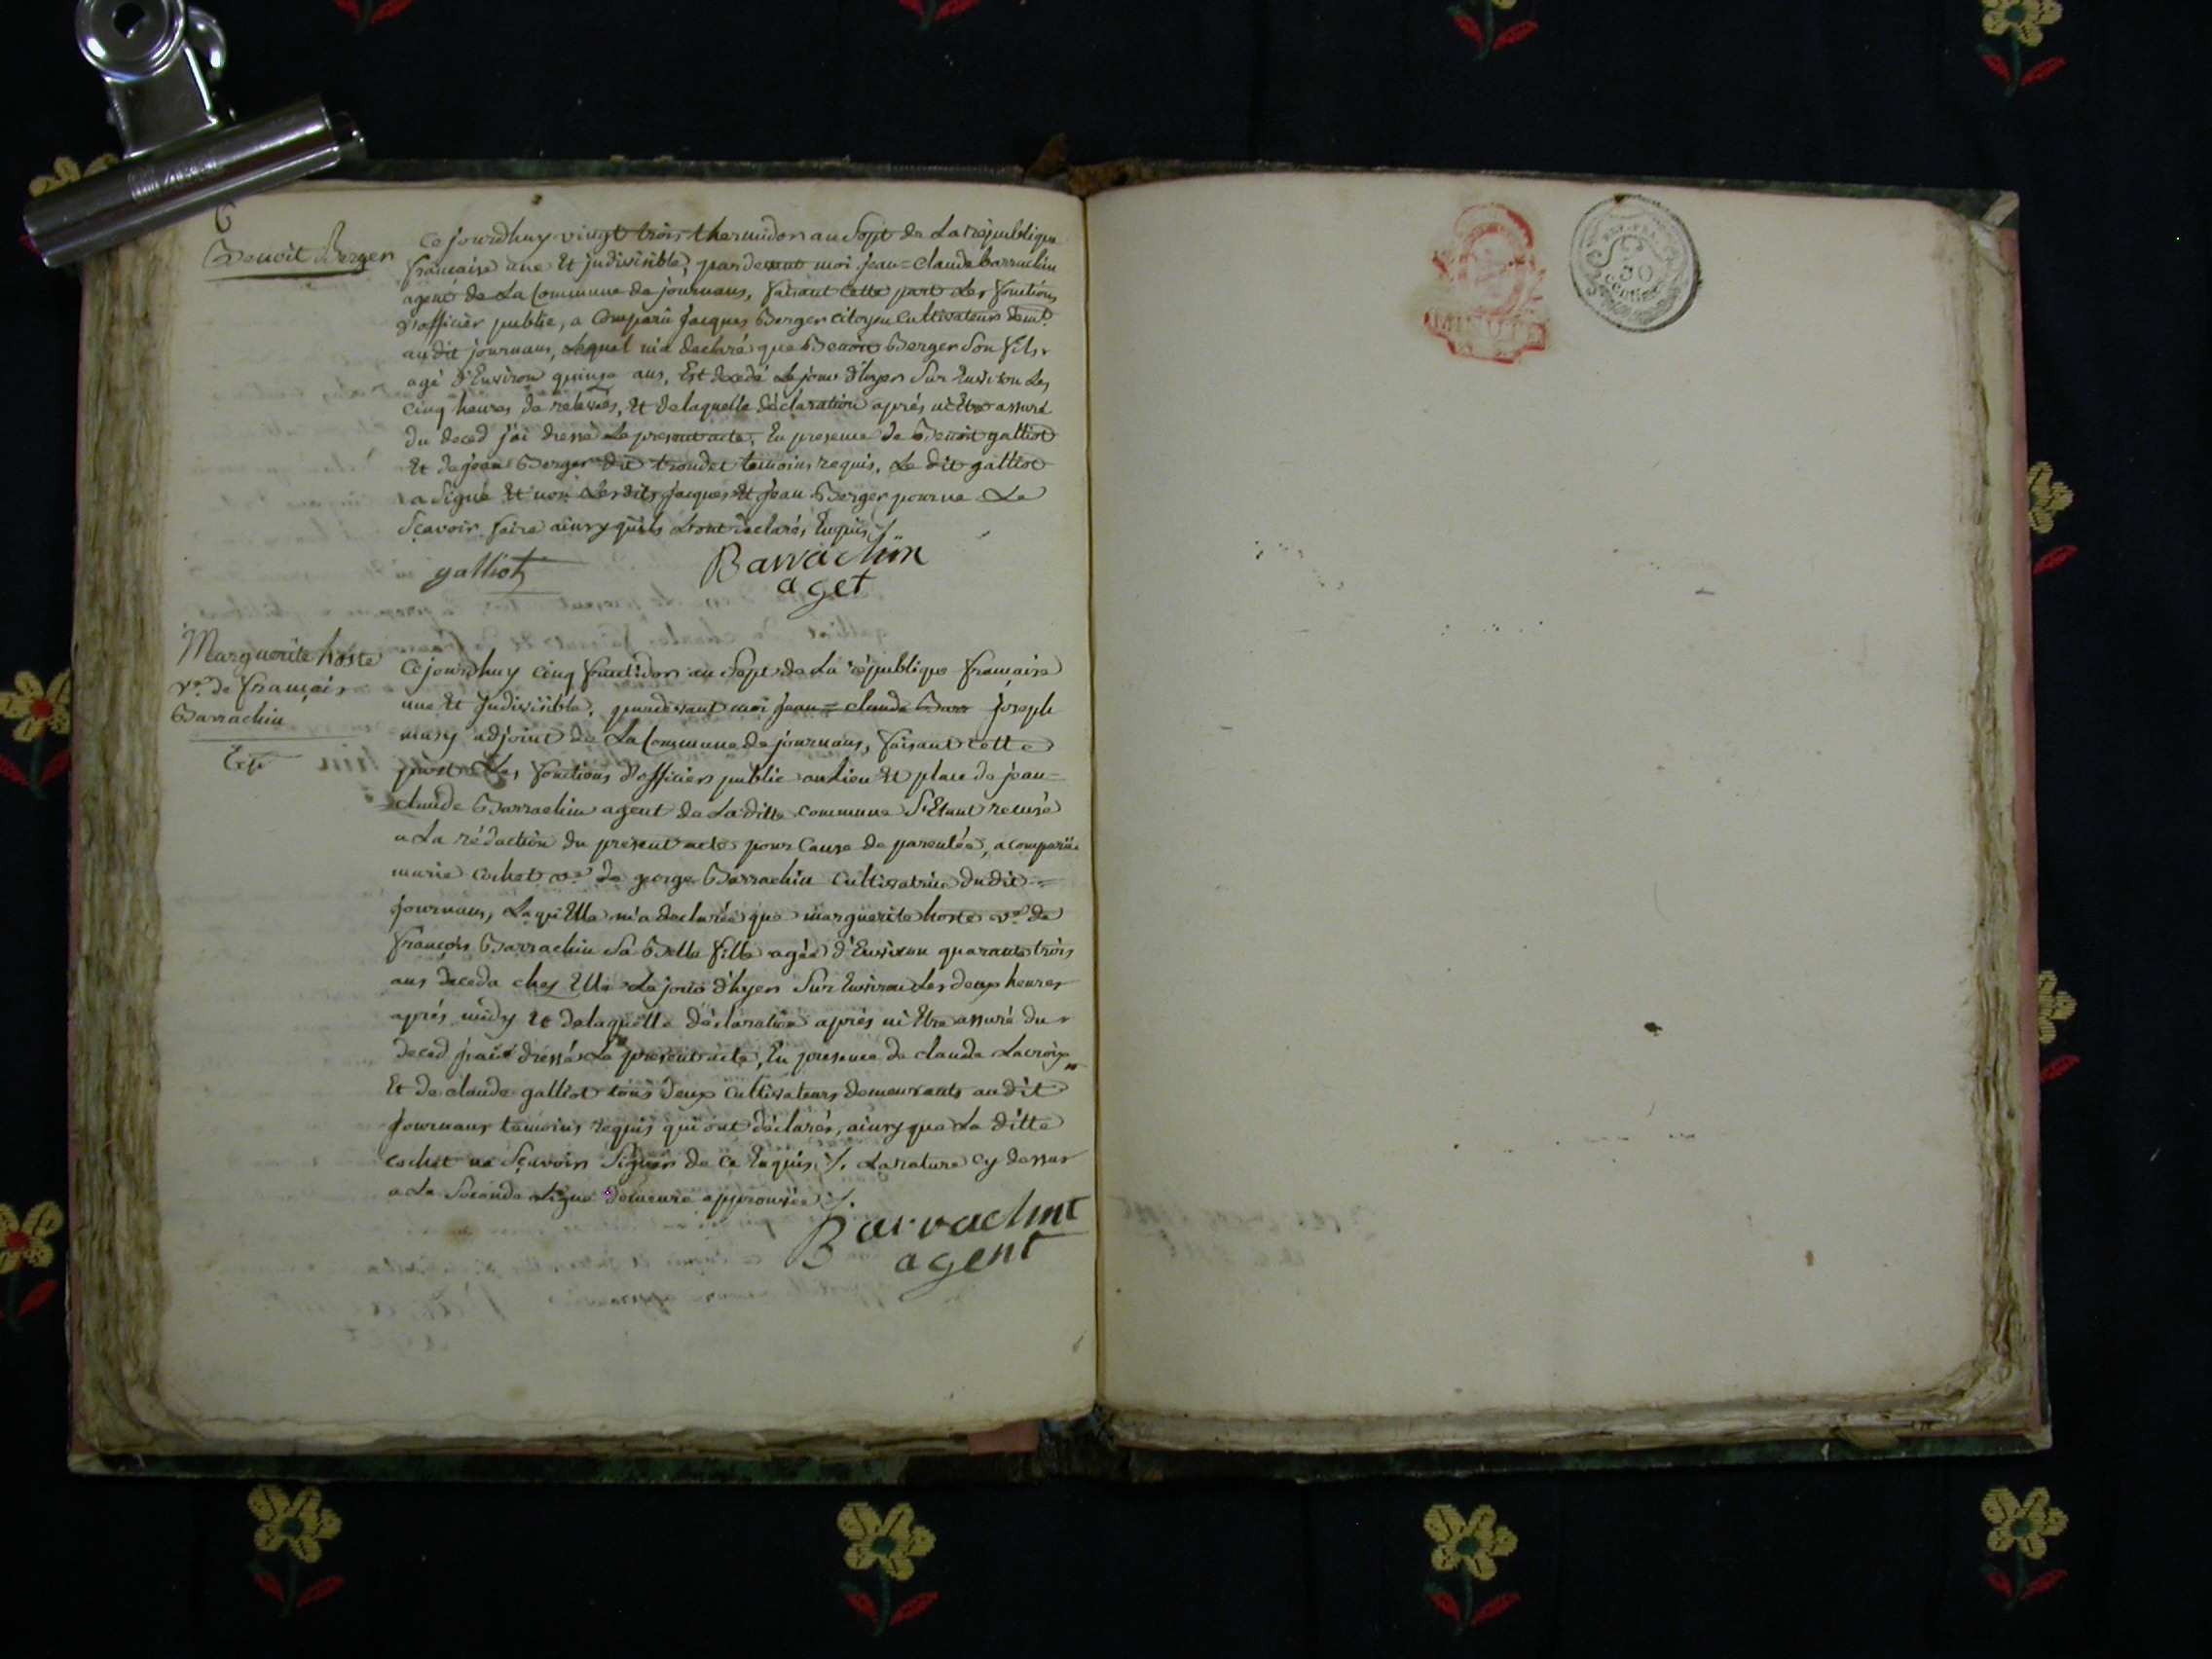 6
Benoit Berger
Ce jourdhuy vingt trois thermidor an Sept de La republique
francaise une Et indivisible, pardevant moi jean=claude barrachin
agent de La Commune de journans, faisant cette part Les fonctions
d'officier public, a Comparû jacques Berger citoyen Cultivateur demt.
audit journans, Lequel m'a declaré que Benoit Berger Son fils
agé d'Environ quinze ans, Est decedé Le jour d'hyer Sur Environ Les
cinq heures de relevées, Et delaquelle déclaration aprés m'Etre assuré
du deced j'ai dressé Le present acte, En presence de Benoit galliot
Et de jean Berger dit trondet temoins requis, Le dit galliot
a Signé Et non Lesdits jacques Et jean Berger pour ne Le
Sçavoir faire ainsy quils L'ont declarés Enquis ./.
galliot
Barrachin
aget
Marguerite hoste
ve. de français
Barrachin
Ce jourdhuy cinq fructidor an Sept de La république française
une Et Indivisible, pardevant moi jean=claude Barr joseph
adjoint de La Commune de journans, faisant cette
part Les fonctions d'officier public au Lieu Et place de jean=
claude Barrachin agent de La ditte commune S'Etant recusé
a La rédaction du present acte pour Cause de parentée, a comparüe
marie cochet ve. de george Barrachin Cultivatrice dudit =
journans, Laquelle m'a declarée que marguerite hoste ve. de
françois Barrachin Sa Belle fille agée d'Environ quarante trois
ans deceda chez Elle Le jour d'hyer Sur Environ Les deux heures
aprés midy Et delaquelle déclaration aprés m'Etre assuré du
deced j'ai dressé Le present acte, En presence de claude Lacroix
Et de claude galliot tous deux Cultivateurs demeurants audit
journans temoins requis qui ont déclarés, ainsy que La ditte
cochet ne Sçavoir Signer de ce Enquis ./. La rature cy dessus
a La Seconde Ligne demeure approuvée ./.
Barrachint
agent
MINUTE
50
centimes